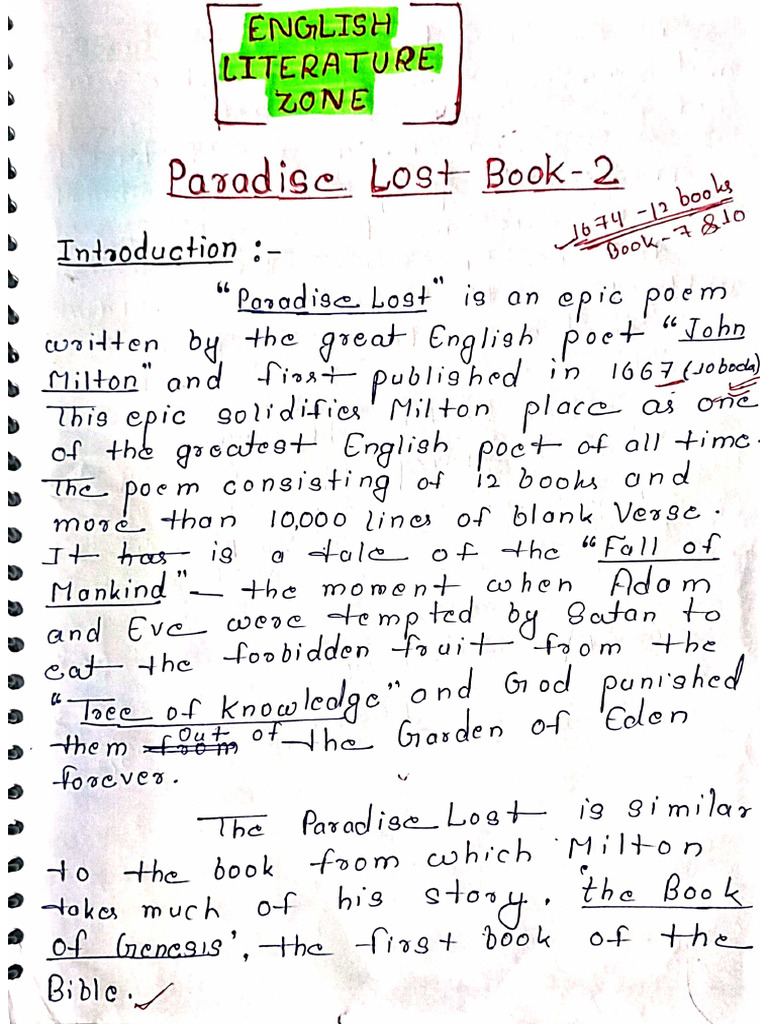 ENGLISH
LITERATURE
ZONE
Paradise Lost Book-2
1674 - 12 books
Book - 7 & 10
Introduction :-
"Paradise Lost" is an epic poem
written by the great English poet "John
Milton" and first published in 1667 (10 books)
This epic solidifies Milton place as one
of the greatest English poet of all time.
The poem consisting of 12 books and
more than 10,000 lines of blank Verse.
It has is a tale of the "Fall of
Mankind" - the moment when Adam
and Eve were tempted by Satan to
eat the forbidden fruit from the
"Tree of knowledge" and God punished
them from out of the Garden of Eden
forever.
The Paradise Lost is similar
to the book from which Milton
takes much of his story. 'the Book
of Genesis', the first book of the
Bible.